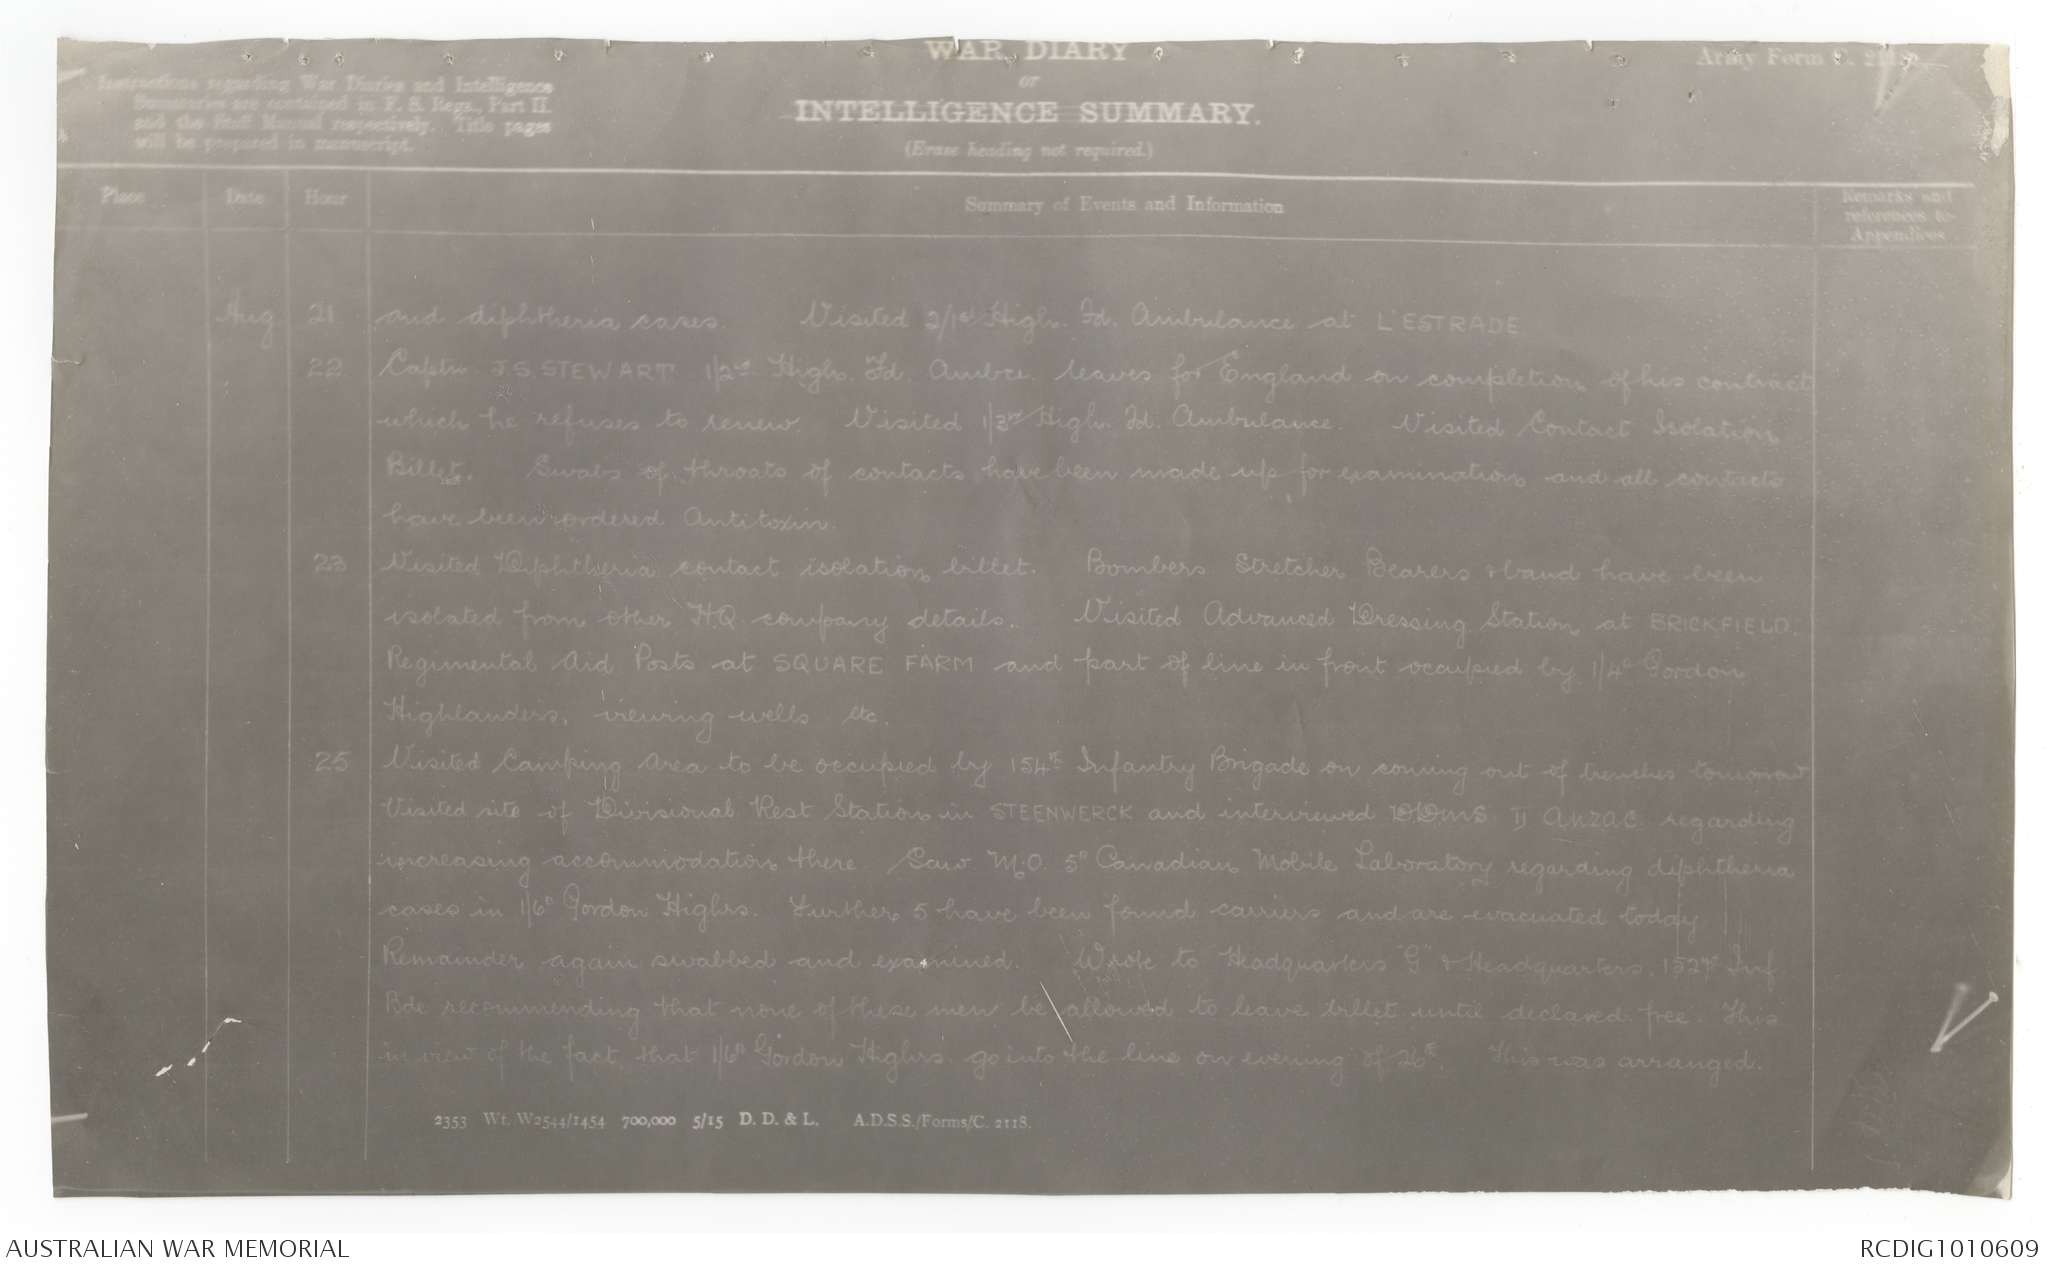 WAR DIARY
or
INTELLIGENCE SUMMARY.
(Erase heading not required.)
Army Form C. 2118.
Instructions regarding War Diaries and Intelligence
Summaries are contained in F. S. Regs., Part II.
and the Staff Manual respectively. Title pages
will be prepared in manuscript.
Place Date Hour Summary of Events and Information Remarks and
references to
Appendices
Aug 21 and diphtheria cases. Visited 2/1st Highr. Fd. Ambulance at L'ESTRADE
22 Captn J.S. STEWART 1/2nd Highr. Fd. Ambce. leaves for England on completion of his contract
which he refuses to renew. Visited 1/3rd Highr. Fd. Ambulance. Visited Contact Isolation
Billet. Swabs of throats of contacts have been made up for examination and all contacts
have been ordered Antitoxin.
23 Visited Diphtheria contact isolation billet. Bombers Stretcher Bearers & band have been
isolated from other H.Q. company details. Visited Advanced Dressing Station at BRICKFIELD.
Regimental Aid Posts at SQUARE FARM and part of line in front occupied by 1/4th Gordon
Highlanders, viewing wells etc.
25 Visited Camping Area to be occupied by 154th Infantry Brigade on coming out of trenches tomorrow
Visited site of Divisional Rest Station in STEENWERCK and interviewed DDMS II ANZAC regarding
increasing accommodation there. Saw M.O. 5th Canadian Mobile Laboratory regarding diphtheria
cases in 1/6th Gordon Highrs. Further 5 have been found carriers and are evacuated today
Remainder again swabbed and examined. Wrote to Headquarters "G" & Headquarters, 152nd Inf
Bde recommending that none of these men be allowed to leave billet until declared free. This
in view of the fact that 1/6th Gordon Highrs. go into the line on evening of 26th. This was arranged.
2353 Wt. W2544/1454 700,000 5/15 D. D. & L. A.D.S.S./Forms/C. 2118.
AUSTRALIAN WAR MEMORIAL
RCDIG1010609